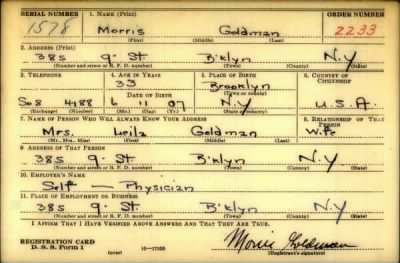 SERIAL NUMBER 1. NAME (Print) ORDER NUMBER
1578 Morris Goldman 2233
(First) (Middle) (Last)
2. ADDRESS (Print)
385 9. St B'klyn N.Y
(Number and street or R. F. D. number) (Town) (County) (State)
3. TELEPHONE 4. AGE IN YEARS 5. PLACE OF BIRTH 6. COUNTRY OF CITIZENSHIP
33 Brooklyn
DATE OF BIRTH (Town or county)
So8 4188 6 11 07 N.Y U.S.A.
(Exchange) (Number) (Mo.) (Day) (Yr.) (State or country)
7. NAME OF PERSON WHO WILL ALWAYS KNOW YOUR ADDRESS 8. RELATIONSHIP OF THAT PERSON
Mrs. Leila Goldman Wife
(Mr., Mrs., Miss) (First) (Middle) (Last)
9. ADDRESS OF THAT PERSON
385 9. St B'klyn N.Y
(Number and street or R. F. D. number) (Town) (County) (State)
10. EMPLOYER'S NAME
Self — Physician
11. PLACE OF EMPLOYMENT OR BUSINESS
385 9. St B'klyn N.Y
(Number and street or R. F. D. number) (Town) (County) (State)
I AFFIRM THAT I HAVE VERIFIED ABOVE ANSWERS AND THAT THEY ARE TRUE.
REGISTRATION CARD
D. S. S. FORM 1 (over) 16—17105 Morris Goldman
(Registrant's signature)